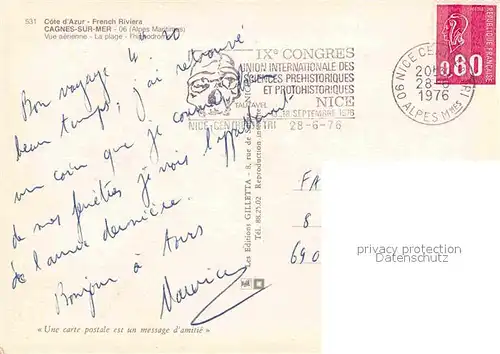 531 Côte d'Azur - French Riviera
CAGNES-SUR-MER - 06 (Alpes Maritimes)
Vue aérienne - La plage - l'hippodrome
IXe CONGRES
UNION INTERNATIONALE DES
SCIENCES PREHISTORIQUES
ET PROTOHISTORIQUES
TAUTAVEL NICE
18 SEPTEMBRE 1976
NICE CENTRE TRI 28-6-76
06 NICE CENTRE TRI
20H
28-6
1976
ALPES Mmes
0,80
POSTES
REPUBLIQUE FRANÇAISE
Bon voyage
beau temps, j'ai retrouvé
un coin que je connais
de mes fenêtres je vois l'appartement
de l'année dernière.
Bonjour à tous
Maurice
Les Editions GILLETTA - 8, rue de
Tél. 88.25.02 Reproduction
FA
8
690
privacy protection
watermark
« Une carte postale est un message d'amitié »